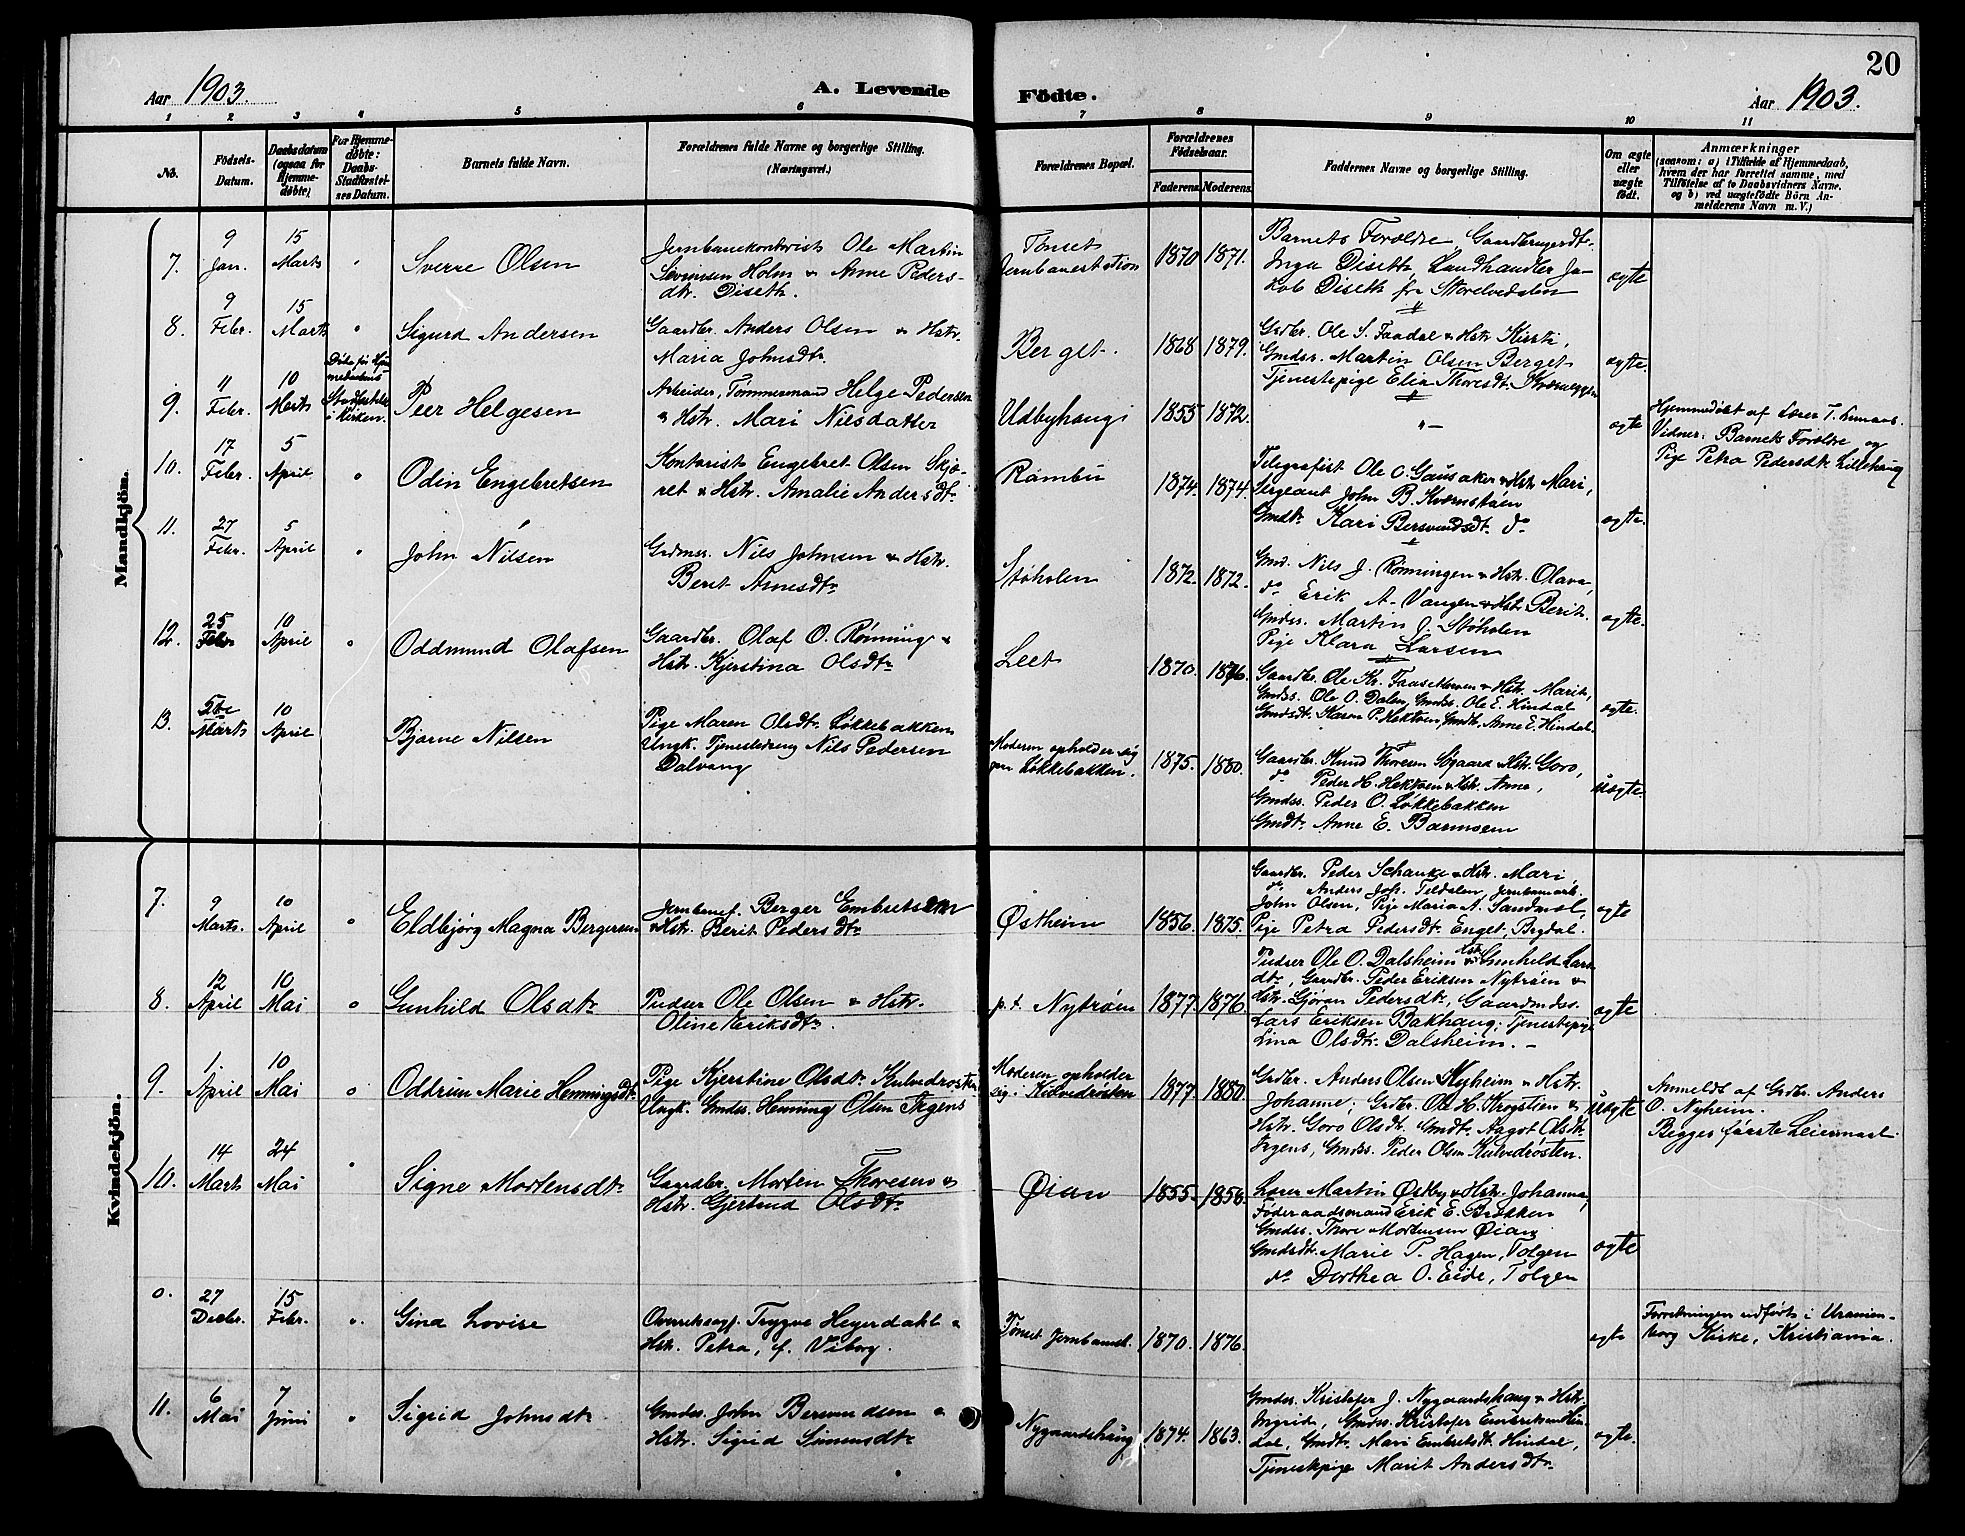 20
Aar 1903.
A. Levende Födte.
Aar 1903.
1 2 3 4 5 6 7 8 9 10 11
No.
Födsels-Datum.
Daabsdatum (ogsaa for Hjemmedøbte)
For Hjemmedøbte: Daabs-Stadfæstelses Datum.
Barnets fulde Navn.
Forældrenes fulde Navne og borgerlige Stilling.
(Næringsvei.)
Forældrenes Bopæl.
Forældrenes Födselsaar.
Faderens. Moderens.
Faddernes Navne og borgerlige Stilling.
Om ægte eller uægte født.
Anmærkninger
(saasom: a) i Tilfælde af Hjemmedaab,
hvem der har forrettet samme, med
Tilføielse af to Daabsvidners Navne.
og b) ved uægtefødte Börn An-
melderens Navn m. V.)
Mandkjön.
7. 9 Jan. 15 Marts " Sverre Olsen
Jernbanekontorist Ole Martin
Sørensen Holm & Anne Peders-
dtr. Diseth.
Tønset
Jernbanestation
1870 1871.
Barnets Forældre, Gaardbrugerdt.
Inga Diseth, Landhandler Ja-
kob Diseth fra Storelvedalen
ægte
8. 9 Febr. 15 Marts " Sigurd Andersen
Gaardbr. Anders Olsen & Hstr.
Maria Johnsdtr.
Berget.
1868 1879.
Grdbr. Ole S. Faadal & Hstr. Kirsti,
Gmdss. Martin Olsen Berget
Tjenestepige Elin Thoresdt.
ægte.
9. 11 Febr. 10 Marts
Stadfæstelse
i Kirken.
Peer Helgesen
Arbeider, Tømmermand Helge Pedersen
& Hstr. Mari Nilsdatter
Udbyhaugi
1855 1872.
"
ægte
Hjemmedøbt af Lærer T.
Vidner: Barnets Forældre og
Pige Petra Pedersdtr. Lillehaug
10. 17 Febr. 5 April " Odin Engebretsen
Kontorist Engebret Olsen Skjæ-
ret & Hstr. Amalie Andersdtr.
Rambu
1874. 1874.
Telegrafist Ole O. Gausaker & Hstr. Mari,
Sergeant John B. Kværnstøen
Gmdtr. Kari Bersvendsdt. do
ægte.
11. 27 Febr. 5 April " John Nilsen
Grdmss. Nils Johnsen & Hstr.
Berit Arnesdtr.
Støholen
1872. 1872.
Gmd. Nils J. Rønningen & Hstr. Olava,
do Erik A. Vangen & Hst. Berit.
Gmdss. Martin J. Støholen
Pige Klara Larsen
ægte.
12. 25 Febr. 10 April " Oddmund Olafsen
Gaardbr. Olaf O. Rønning &
Hstr. Kjerstina Olsdtr.
Leet
1870. 1876.
Gaardbr. Ole Kr. & Hstr. Marit,
Gmdss. Ole O. Dalen, Gmdss. Ole E. Hindal
Gmdsdt. Karen P. Hektoen, Gmdtr. Anne E. Hindal.
ægte.
13. 5te Marts 10 April Bjarne Nilsen
Pige Maren Olsdtr. Løkkebakken
Ungk. Tjenestedreng Nils Pedersen
Dalvang
Moderen opholder sig
paa Løkkebakken.
1875. 1880.
Gaardbr. Knud Thoresen Søgaard & Hstr. Goro,
do Peder H. Hektoen & Hstr. Anne,
Gmdss. Peder O. Løkkebakken
Gmdtr. Anne E. Barmoen
uægte.
Kvindekjön.
7. 9 Marts. 10 April " Eldbjørg Magna Bergersen
Jernbanef. Berger Embretsen
& Hstr. Berit Pedersdtr.
Østheim
1856. 1875.
Gaardbr. Peder Schanke & Hstr. Mari,
do Anders Joh. Teldalen, Jernbanearb.
John Olsen, Pige Maria A. Sandmæl,
Pige Petra Pedersdt. Enget, Brydal.
ægte
8. 12 April 10 Mai " Gunhild Olsdtr.
Pudser Ole Olsen & Hstr.
Oline Eriksdtr.
p. t. Nytrøen
1877. 1876.
Pudser Ole O. Dalsheim & Hstr. Gunhild Lars-
dtr., Gaardbr. Peder Eriksen Nytrøen &
Hstr. Gjøran Pedersdtr., Gaardmdss.
Lars Eriksen Bakhaug; Tjenestepige
Lina Olsdtr. Dalsheim. –
ægte
9. 1 April 10 Mai " Oddrun Marie Henningsdt.
Pige Kjerstine Olsdtr. Kulvedrøsten
Ungk. Gmdss. Henning Olsen Trgens
Moderen opholder
sig i Kulvedrøsten
1877. 1880.
Grdbr. Anders Olsen Nyheim & Hstr.
Johanne; Grdbr. Ole H. Krogstien &
Hstr. Goro Olsdt. Gmdtr. Aagot Olsdtr.
Trgens, Gmdss. Peder Olsen Kulvedrøsten.
uægte
Anmeldt af Grdbr. Anders
O. Nyheim.
Begges første Leiermaal
10. 14 Marts 24 Mai " Signe Mortensdtr.
Gaardbr. Morten Thoresen &
Hstr. Gjertrud Olsdtr.
Øian
1855. 1858.
Lærer Martin Østby & Hstr. Johanna,
Føderaadsmand Erik E. Brækken
Gmdss. Thore Mortensen Øian
Gmdsdt. Marie P. Hagen, Tolgen
do Dorthea O. Eide, Tolgen
ægte
0. 27 Decbr. 15 Febr. " Gina Lovise
Overretssagf. Trygve Heyerdahl &
Hstr. Petra, f. Viborg.
Tønset Jernbanest.
1870. 1876.
ægte
Forretningen udført i Uranien-
borg Kirke, Kristiania.
11. 6 Mai 7 Juni " Sigrid Johnsdtr.
Gmdss. John Bersvendsen &
Hstr. Sigrid Simensdtr.
Nygaardshaug
1874. 1863.
Gmdss. Kristofer J. Nygaardshaug & Hstr.
Ingrid, Gmdss. Kristofer Embretsen Hin-
dal, Gmdt. Mari Embretsdt. Hindal,
Tjenestepige Marit Andersdtr.
ægte.